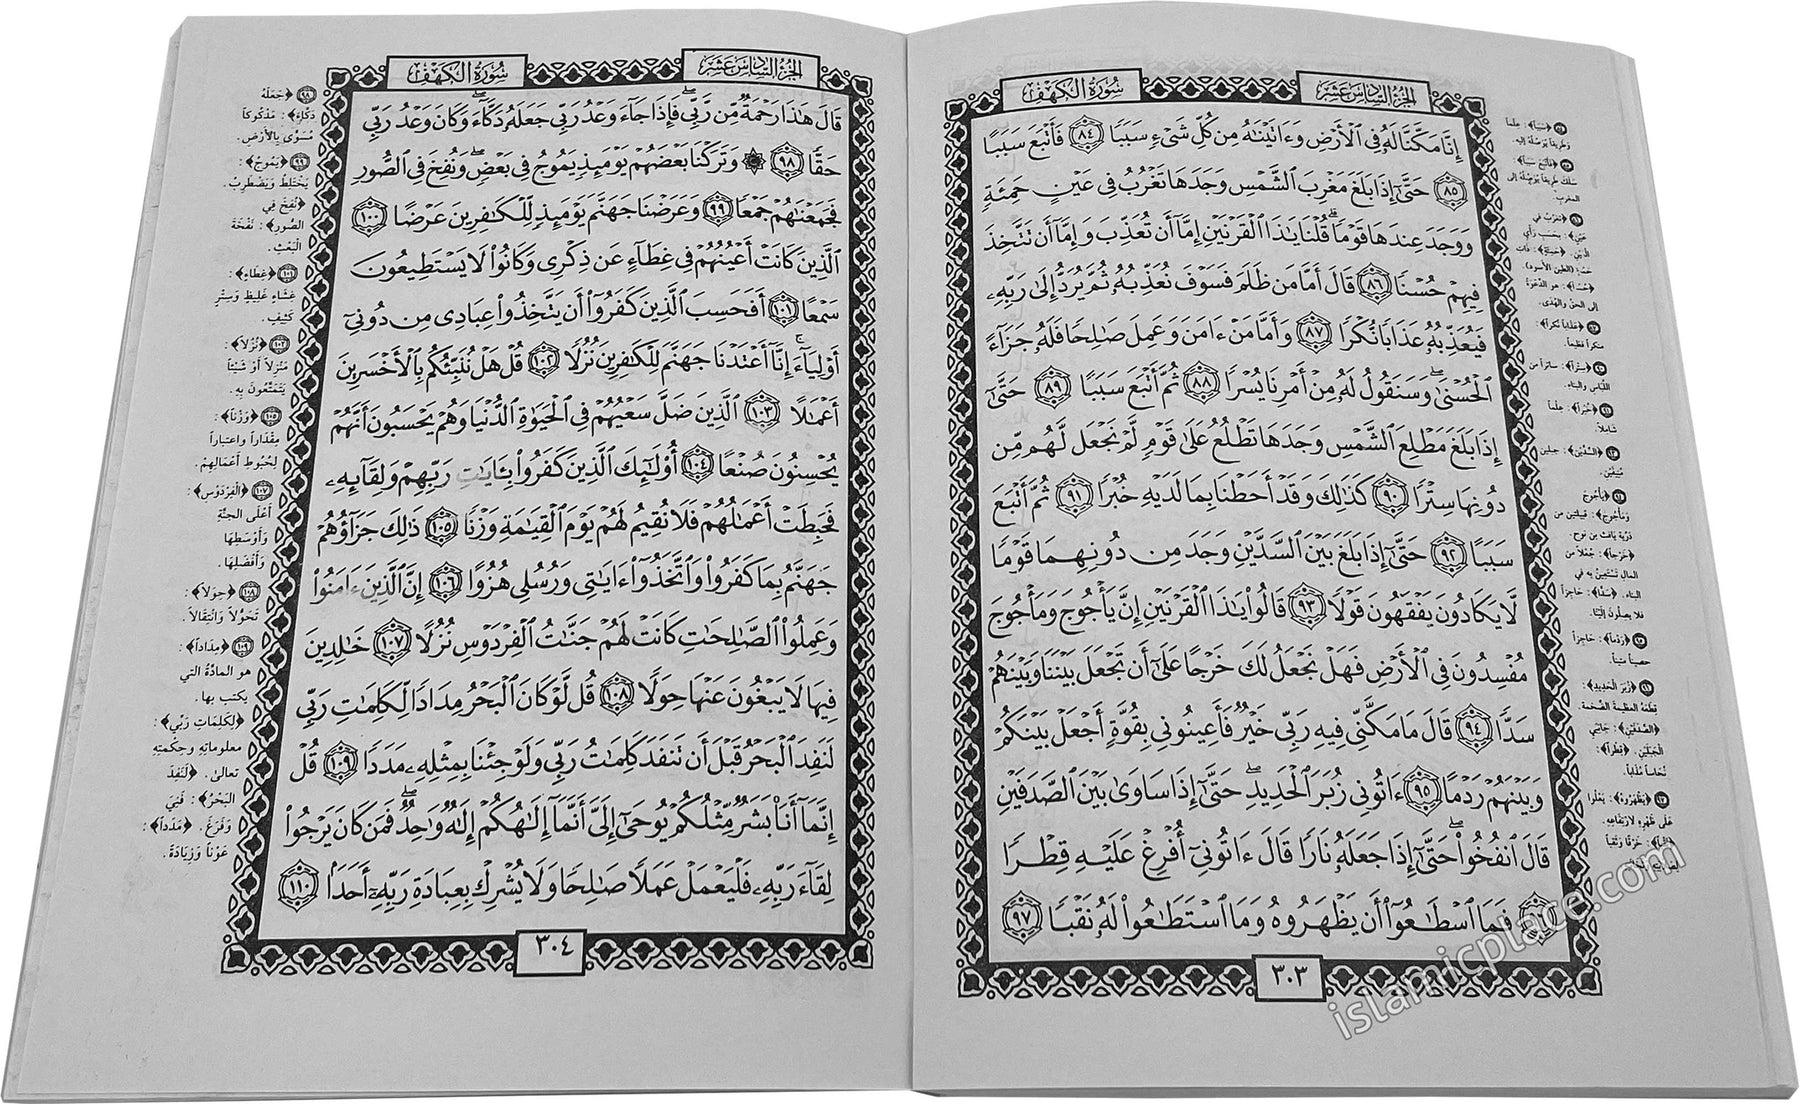 سُورَةُ الكَهْفِ
الجُزْءُ السَّادِسَ عَشَرَ
إِنَّا مَكَّنَّا لَهُۥ فِى ٱلْأَرْضِ وَءَاتَيْنَٰهُ مِن كُلِّ شَىْءٍ سَبَبًا ٨٤ فَأَتْبَعَ سَبَبًا
٨٥ حَتَّىٰٓ إِذَا بَلَغَ مَغْرِبَ ٱلشَّمْسِ وَجَدَهَا تَغْرُبُ فِى عَيْنٍ حَمِئَةٍ
وَوَجَدَ عِندَهَا قَوْمًا ۗ قُلْنَا يَٰذَا ٱلْقَرْنَيْنِ إِمَّآ أَن تُعَذِّبَ وَإِمَّآ أَن تَتَّخِذَ
فِيهِمْ حُسْنًا ٨٦ قَالَ أَمَّا مَن ظَلَمَ فَسَوْفَ نُعَذِّبُهُۥ ثُمَّ يُرَدُّ إِلَىٰ رَبِّهِۦ
فَيُعَذِّبُهُۥ عَذَابًا نُّكْرًا ٨٧ وَأَمَّا مَنْ ءَامَنَ وَعَمِلَ صَٰلِحًا فَلَهُۥ جَزَآءً
ٱلْحُسْنَىٰ ۖ وَسَنَقُولُ لَهُۥ مِنْ أَمْرِنَا يُسْرًا ٨٨ ثُمَّ أَتْبَعَ سَبَبًا ٨٩ حَتَّىٰٓ
إِذَا بَلَغَ مَطْلِعَ ٱلشَّمْسِ وَجَدَهَا تَطْلُعُ عَلَىٰ قَوْمٍ لَّمْ نَجْعَل لَّهُم مِّن
دُونِهَا سِتْرًا ٩٠ كَذَٰلِكَ وَقَدْ أَحَطْنَا بِمَا لَدَيْهِ خُبْرًا ٩١ ثُمَّ أَتْبَعَ
سَبَبًا ٩٢ حَتَّىٰٓ إِذَا بَلَغَ بَيْنَ ٱلسَّدَّيْنِ وَجَدَ مِن دُونِهِمَا قَوْمًا
لَّا يَكَادُونَ يَفْقَهُونَ قَوْلًا ٩٣ قَالُوا۟ يَٰذَا ٱلْقَرْنَيْنِ إِنَّ يَأْجُوجَ وَمَأْجُوجَ
مُفْسِدُونَ فِى ٱلْأَرْضِ فَهَلْ نَجْعَلُ لَكَ خَرْجًا عَلَىٰٓ أَن تَجْعَلَ بَيْنَنَا وَبَيْنَهُمْ
سَدًّا ٩٤ قَالَ مَا مَكَّنِّى فِيهِ رَبِّى خَيْرٌ فَأَعِينُونِى بِقُوَّةٍ أَجْعَلْ بَيْنَكُمْ
وَبَيْنَهُمْ رَدْمًا ٩٥ ءَاتُونِى زُبَرَ ٱلْحَدِيدِ ۖ حَتَّىٰٓ إِذَا سَاوَىٰ بَيْنَ ٱلصَّدَفَيْنِ
قَالَ ٱنفُخُوا۟ ۖ حَتَّىٰٓ إِذَا جَعَلَهُۥ نَارًا قَالَ ءَاتُونِىٓ أُفْرِغْ عَلَيْهِ قِطْرًا
٩٦ فَمَا ٱسْطَٰعُوٓا۟ أَن يَظْهَرُوهُ وَمَا ٱسْتَطَٰعُوا۟ لَهُۥ نَقْبًا ٩٧
٣٠٣
سُورَةُ الكَهْفِ
الجُزْءُ السَّادِسَ عَشَرَ
قَالَ هَٰذَا رَحْمَةٌ مِّن رَّبِّى ۖ فَإِذَا جَآءَ وَعْدُ رَبِّى جَعَلَهُۥ دَكَّآءَ ۖ وَكَانَ وَعْدُ رَبِّى
حَقًّا ٩٨ ۞ وَتَرَكْنَا بَعْضَهُمْ يَوْمَئِذٍ يَمُوجُ فِى بَعْضٍ ۖ وَنُفِخَ فِى ٱلصُّورِ
فَجَمَعْنَٰهُمْ جَمْعًا ٩٩ وَعَرَضْنَا جَهَنَّمَ يَوْمَئِذٍ لِّلْكَٰفِرِينَ عَرْضًا ١٠٠
ٱلَّذِينَ كَانَتْ أَعْيُنُهُمْ فِى غِطَآءٍ عَن ذِكْرِى وَكَانُوا۟ لَا يَسْتَطِيعُونَ
سَمْعًا ١٠١ أَفَحَسِبَ ٱلَّذِينَ كَفَرُوٓا۟ أَن يَتَّخِذُوا۟ عِبَادِى مِن دُونِىٓ
أَوْلِيَآءَ ۚ إِنَّآ أَعْتَدْنَا جَهَنَّمَ لِلْكَٰفِرِينَ نُزُلًا ١٠٢ قُلْ هَلْ نُنَبِّئُكُم بِٱلْأَخْسَرِينَ
أَعْمَٰلًا ١٠٣ ٱلَّذِينَ ضَلَّ سَعْيُهُمْ فِى ٱلْحَيَوٰةِ ٱلدُّنْيَا وَهُمْ يَحْسَبُونَ أَنَّهُمْ
يُحْسِنُونَ صُنْعًا ١٠٤ أُو۟لَٰٓئِكَ ٱلَّذِينَ كَفَرُوا۟ بِـَٔايَٰتِ رَبِّهِمْ وَلِقَآئِهِۦ
فَحَبِطَتْ أَعْمَٰلُهُمْ فَلَا نُقِيمُ لَهُمْ يَوْمَ ٱلْقِيَٰمَةِ وَزْنًا ١٠٥ ذَٰلِكَ جَزَآؤُهُمْ
جَهَنَّمُ بِمَا كَفَرُوا۟ وَٱتَّخَذُوٓا۟ ءَايَٰتِى وَرُسُلِى هُزُوًا ١٠٦ إِنَّ ٱلَّذِينَ ءَامَنُوا۟
وَعَمِلُوا۟ ٱلصَّٰلِحَٰتِ كَانَتْ لَهُمْ جَنَّٰتُ ٱلْفِرْدَوْسِ نُزُلًا ١٠٧ خَٰلِدِينَ
فِيهَا لَا يَبْغُونَ عَنْهَا حِوَلًا ١٠٨ قُل لَّوْ كَانَ ٱلْبَحْرُ مِدَادًا لِّكَلِمَٰتِ رَبِّى
لَنَفِدَ ٱلْبَحْرُ قَبْلَ أَن تَنفَدَ كَلِمَٰتُ رَبِّى وَلَوْ جِئْنَا بِمِثْلِهِۦ مَدَدًا ١٠٩ قُلْ
إِنَّمَآ أَنَا۠ بَشَرٌ مِّثْلُكُمْ يُوحَىٰٓ إِلَىَّ أَنَّمَآ إِلَٰهُكُمْ إِلَٰهٌ وَٰحِدٌ ۖ فَمَن كَانَ يَرْجُوا۟
لِقَآءَ رَبِّهِۦ فَلْيَعْمَلْ عَمَلًا صَٰلِحًا وَلَا يُشْرِكْ بِعِبَادَةِ رَبِّهِۦٓ أَحَدًۢا ١١٠
٣٠٤
٩٨ ﴿جَعَلَهُ
دَكَّاءَ﴾ : مَدْكُوكاً
مُسَوًّى بِالأَرْضِ.
٩٩ ﴿يَمُوجُ﴾ :
يَخْتَلِطُ وَيَضْطَرِبُ.
﴿نُفِخَ فِي
الصُّورِ﴾ : نَفْخَةَ
الْبَعْثِ.
١٠١ ﴿غِطَاءٍ﴾ :
غِشَاءٍ غَلِيظٍ وَسِتْرٍ
كَثِيفٍ.
١٠٢ ﴿نُزُلاً﴾ :
مَنْزِلاً أَوْ شَيْئاً
يَتَمَتَّعُونَ بِهِ.
١٠٥ ﴿وَزْناً﴾ :
مِقْدَاراً وَاعتباراً
لِحُبُوطِ أَعْمَالِهِمْ.
١٠٧ ﴿الْفِرْدَوْسِ﴾ :
أَعْلَى الجَنَّةِ
وَأَوْسَطِهَا
وَأَفْضَلِهَا.
١٠٨ ﴿حِوَلاً﴾ :
تَحَوُّلاً وَانْتِقَالاً.
١٠٩ ﴿مِدَاداً﴾ :
هو المادَّةُ التي
يكتب بها.
﴿لِكَلِمَاتِ رَبِّي﴾ :
معلوماتِهِ وحِكْمَتِهِ
تعالى. ﴿لَنَفِدَ
البَحْرُ﴾ : فَنِيَ
وَفَرَغَ. ﴿مَدَداً﴾ :
عَوْناً وَزِيَادَةً.
islamicplace.com